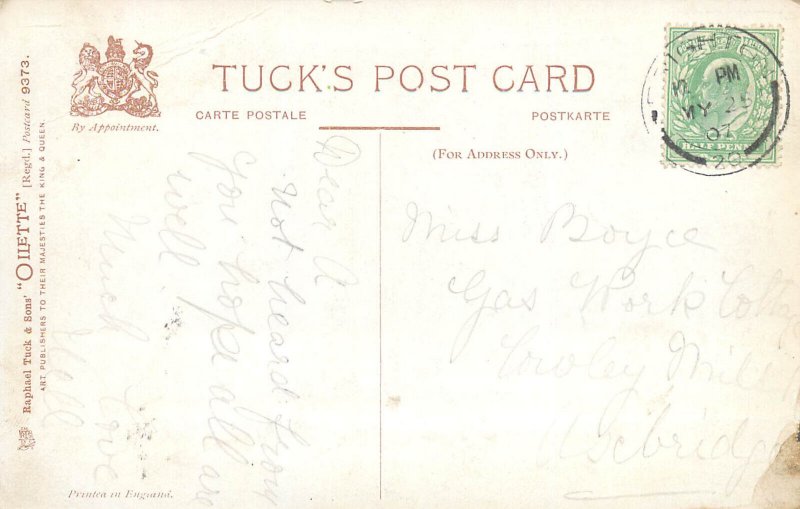 TUCK'S POST CARD
CARTE POSTALE
POSTKARTE
By Appointment.
(FOR ADDRESS ONLY.)
Raphael Tuck & Sons' "OILETTE" [Regd.] Postcard 9373.
ART PUBLISHERS TO THEIR MAJESTIES THE KING & QUEEN.
Printed in England.
PM
MY 25
07
HALF PENNY
Dear A
not heard from
you hope all are
well
Much Love
Nell
Miss Boyce
Gas Work
Cowley
Uxbridge